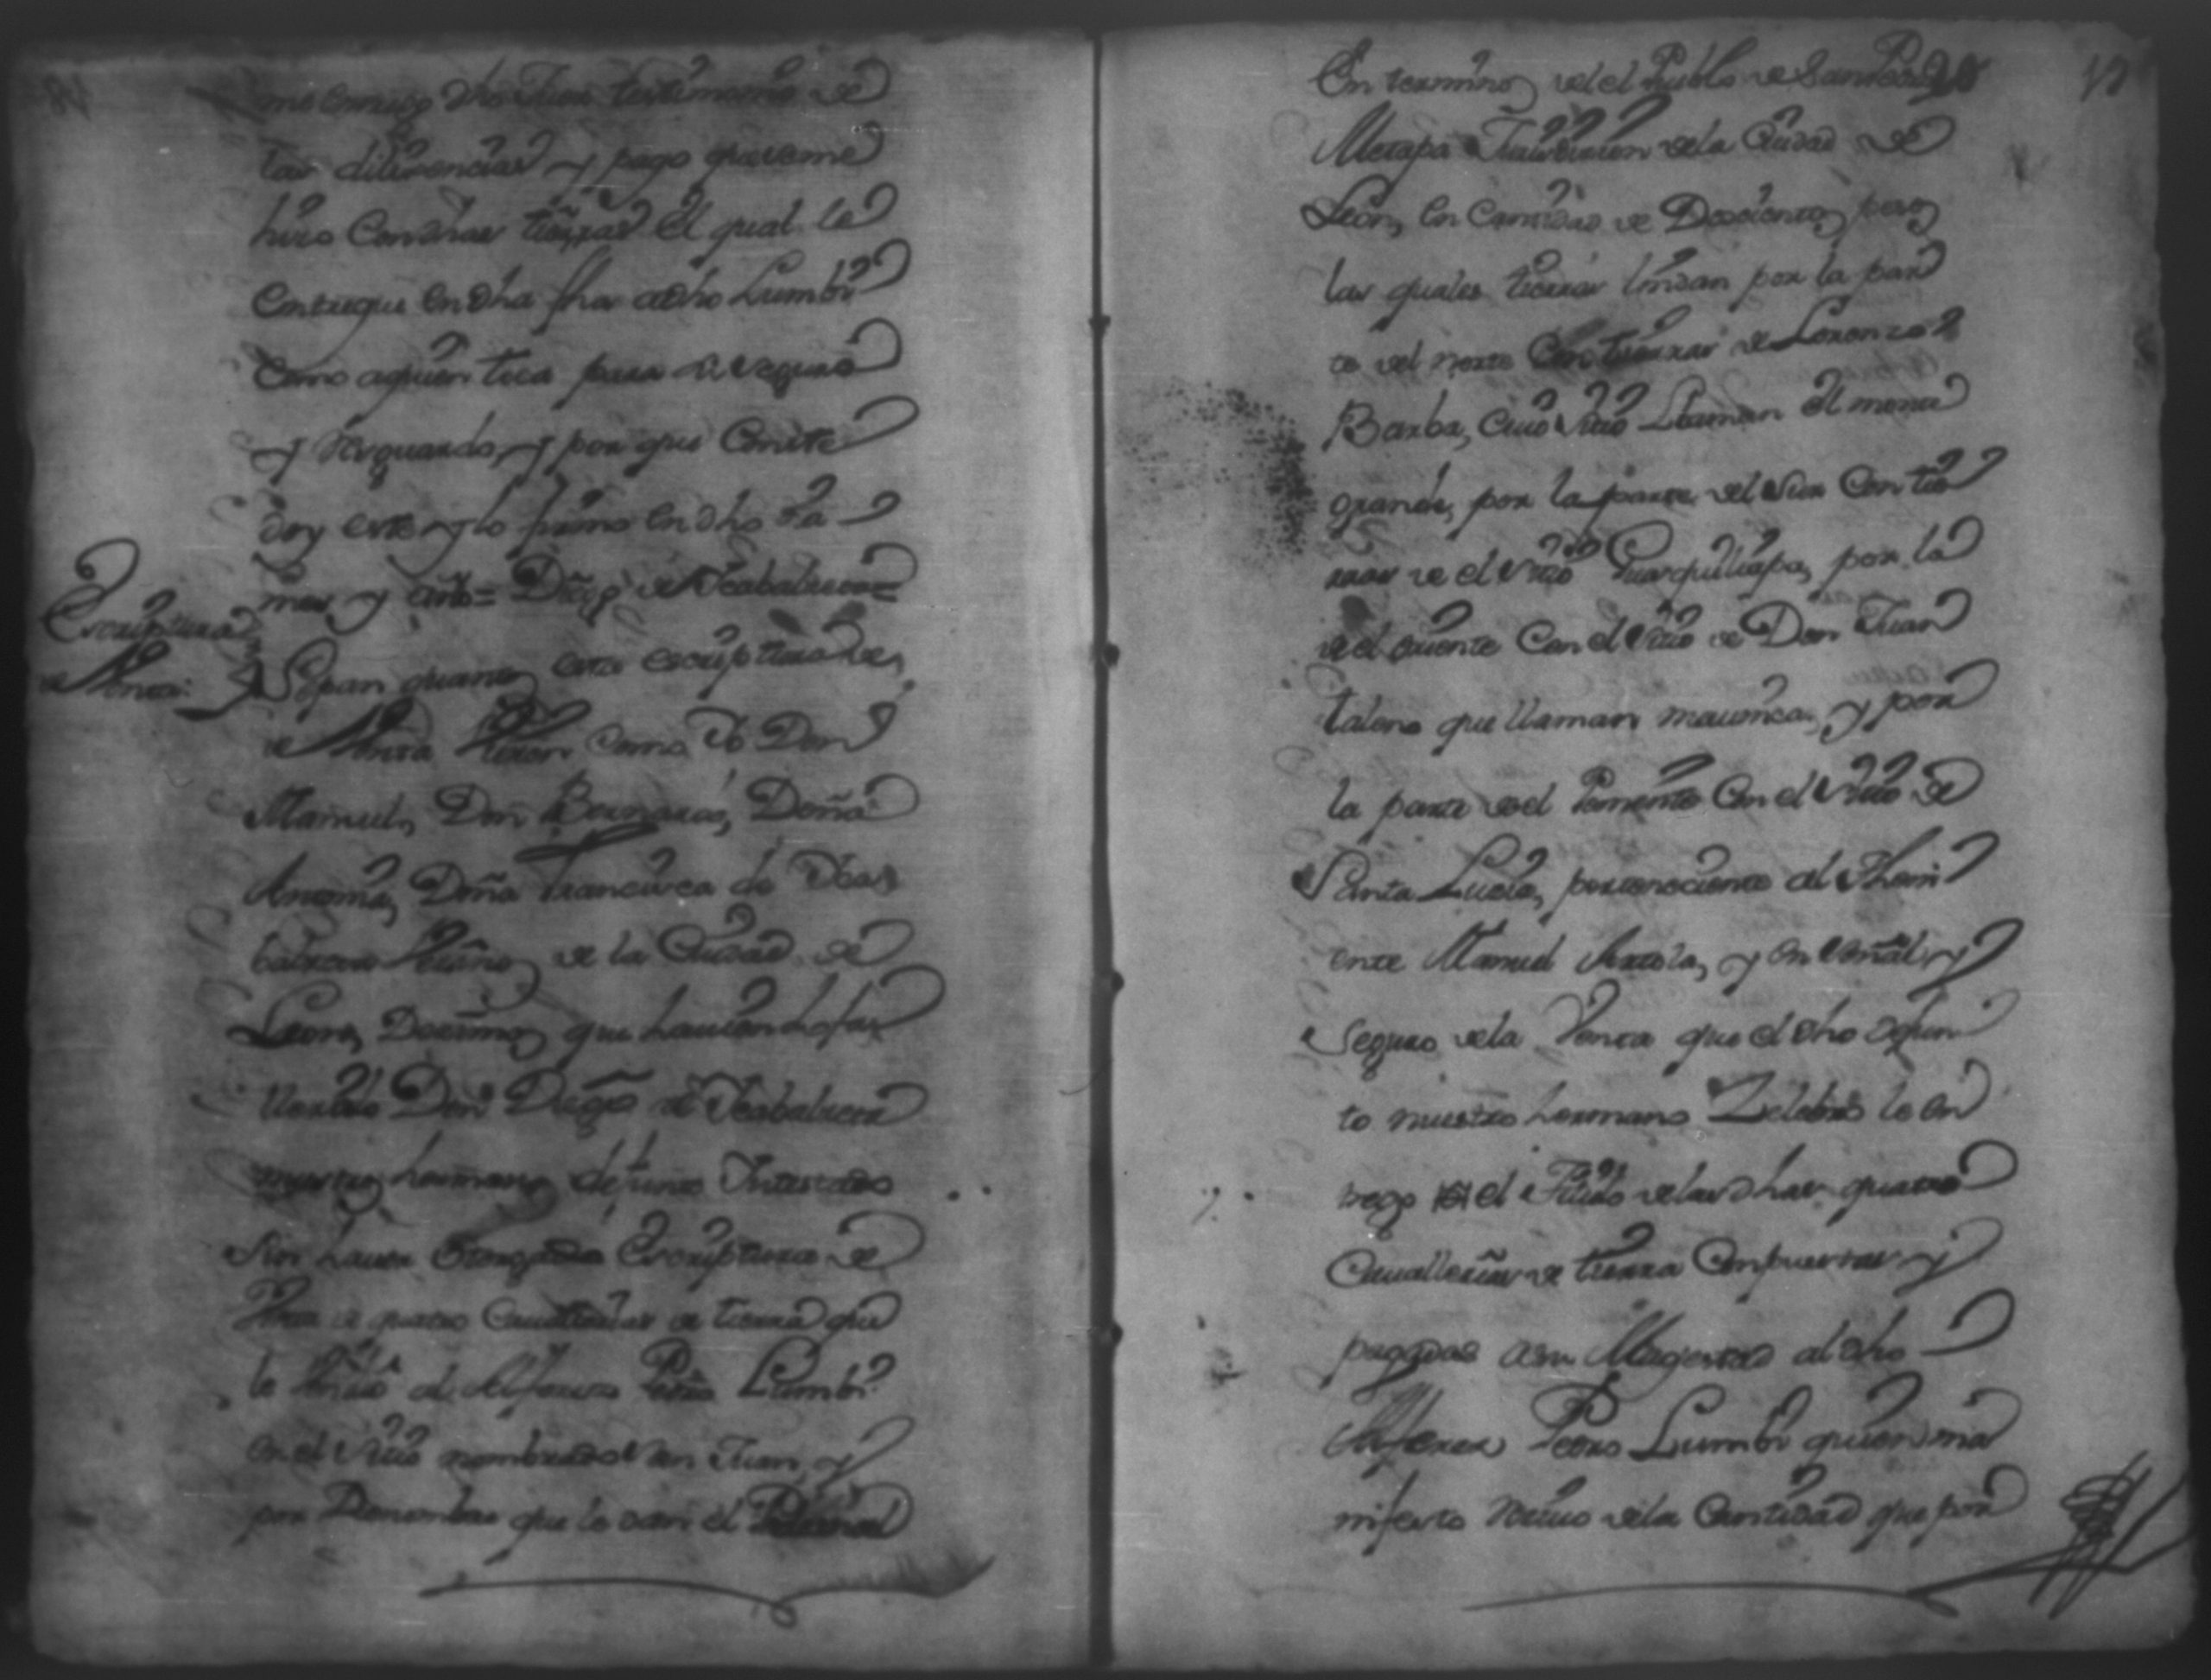 dho Juez testimonio de
las dilixencias y pago que se me
hizo Con dhas tierras El qual le
Entregue en dha fha a dho Lumbi
Como a quien toca para su seguro
y Resguardo, y por que Conste
doy este y lo firmo en dho dia
mes y año = Diego de Escabalzeta =
Escriptura
de Venta
Sepan quantos esta escriptura de
de Venta Vieren Como Yo Don
Manuel, Don Bernardo, Doña
Antonia, Doña Francisca de
Vezinos de la Ciudad de
Leon, Dezimos que haviendo
Don Diego de Escabalzeta
nuestro hermano defunto Intestado
Sin haver Otorgado Escriptura de
Venta de quatro Cavallerias de tierra que
le Vendio al Alferez Pedro Lumbi
en el Sitio nombrado San Juan, y
por que le dan el
En terminos del el Pueblo de San Pedro
Metapa Jurisdicion de la Ciudad de
Leon, en Cantidad de Doscientos pesos
las quales tierras lindan por la par
te del norte Con tierras de Lorenzo
Barba, Cuio Sitio Llaman El monte
grande, por la parte del Sur Con tie
rras de el Sitio por la
de el oriente Con el Sitio de Don Juan
taleno que llaman y por
la parte del Poniente Con el Sitio de
Santa Lucia, perteneciente al Theni
ente Manuel Artola, y en señal y
Seguro de la Venta que el dho defun
to nuestro hermano Zelebró le en
trego el Titulo de las dhas quatro
Cavallerias de tierra Compuestas y
pagadas a su Magestad al dho
Alferez Pedro Lumbi quien ma
nifesto Reciuo de la Cantidad que por